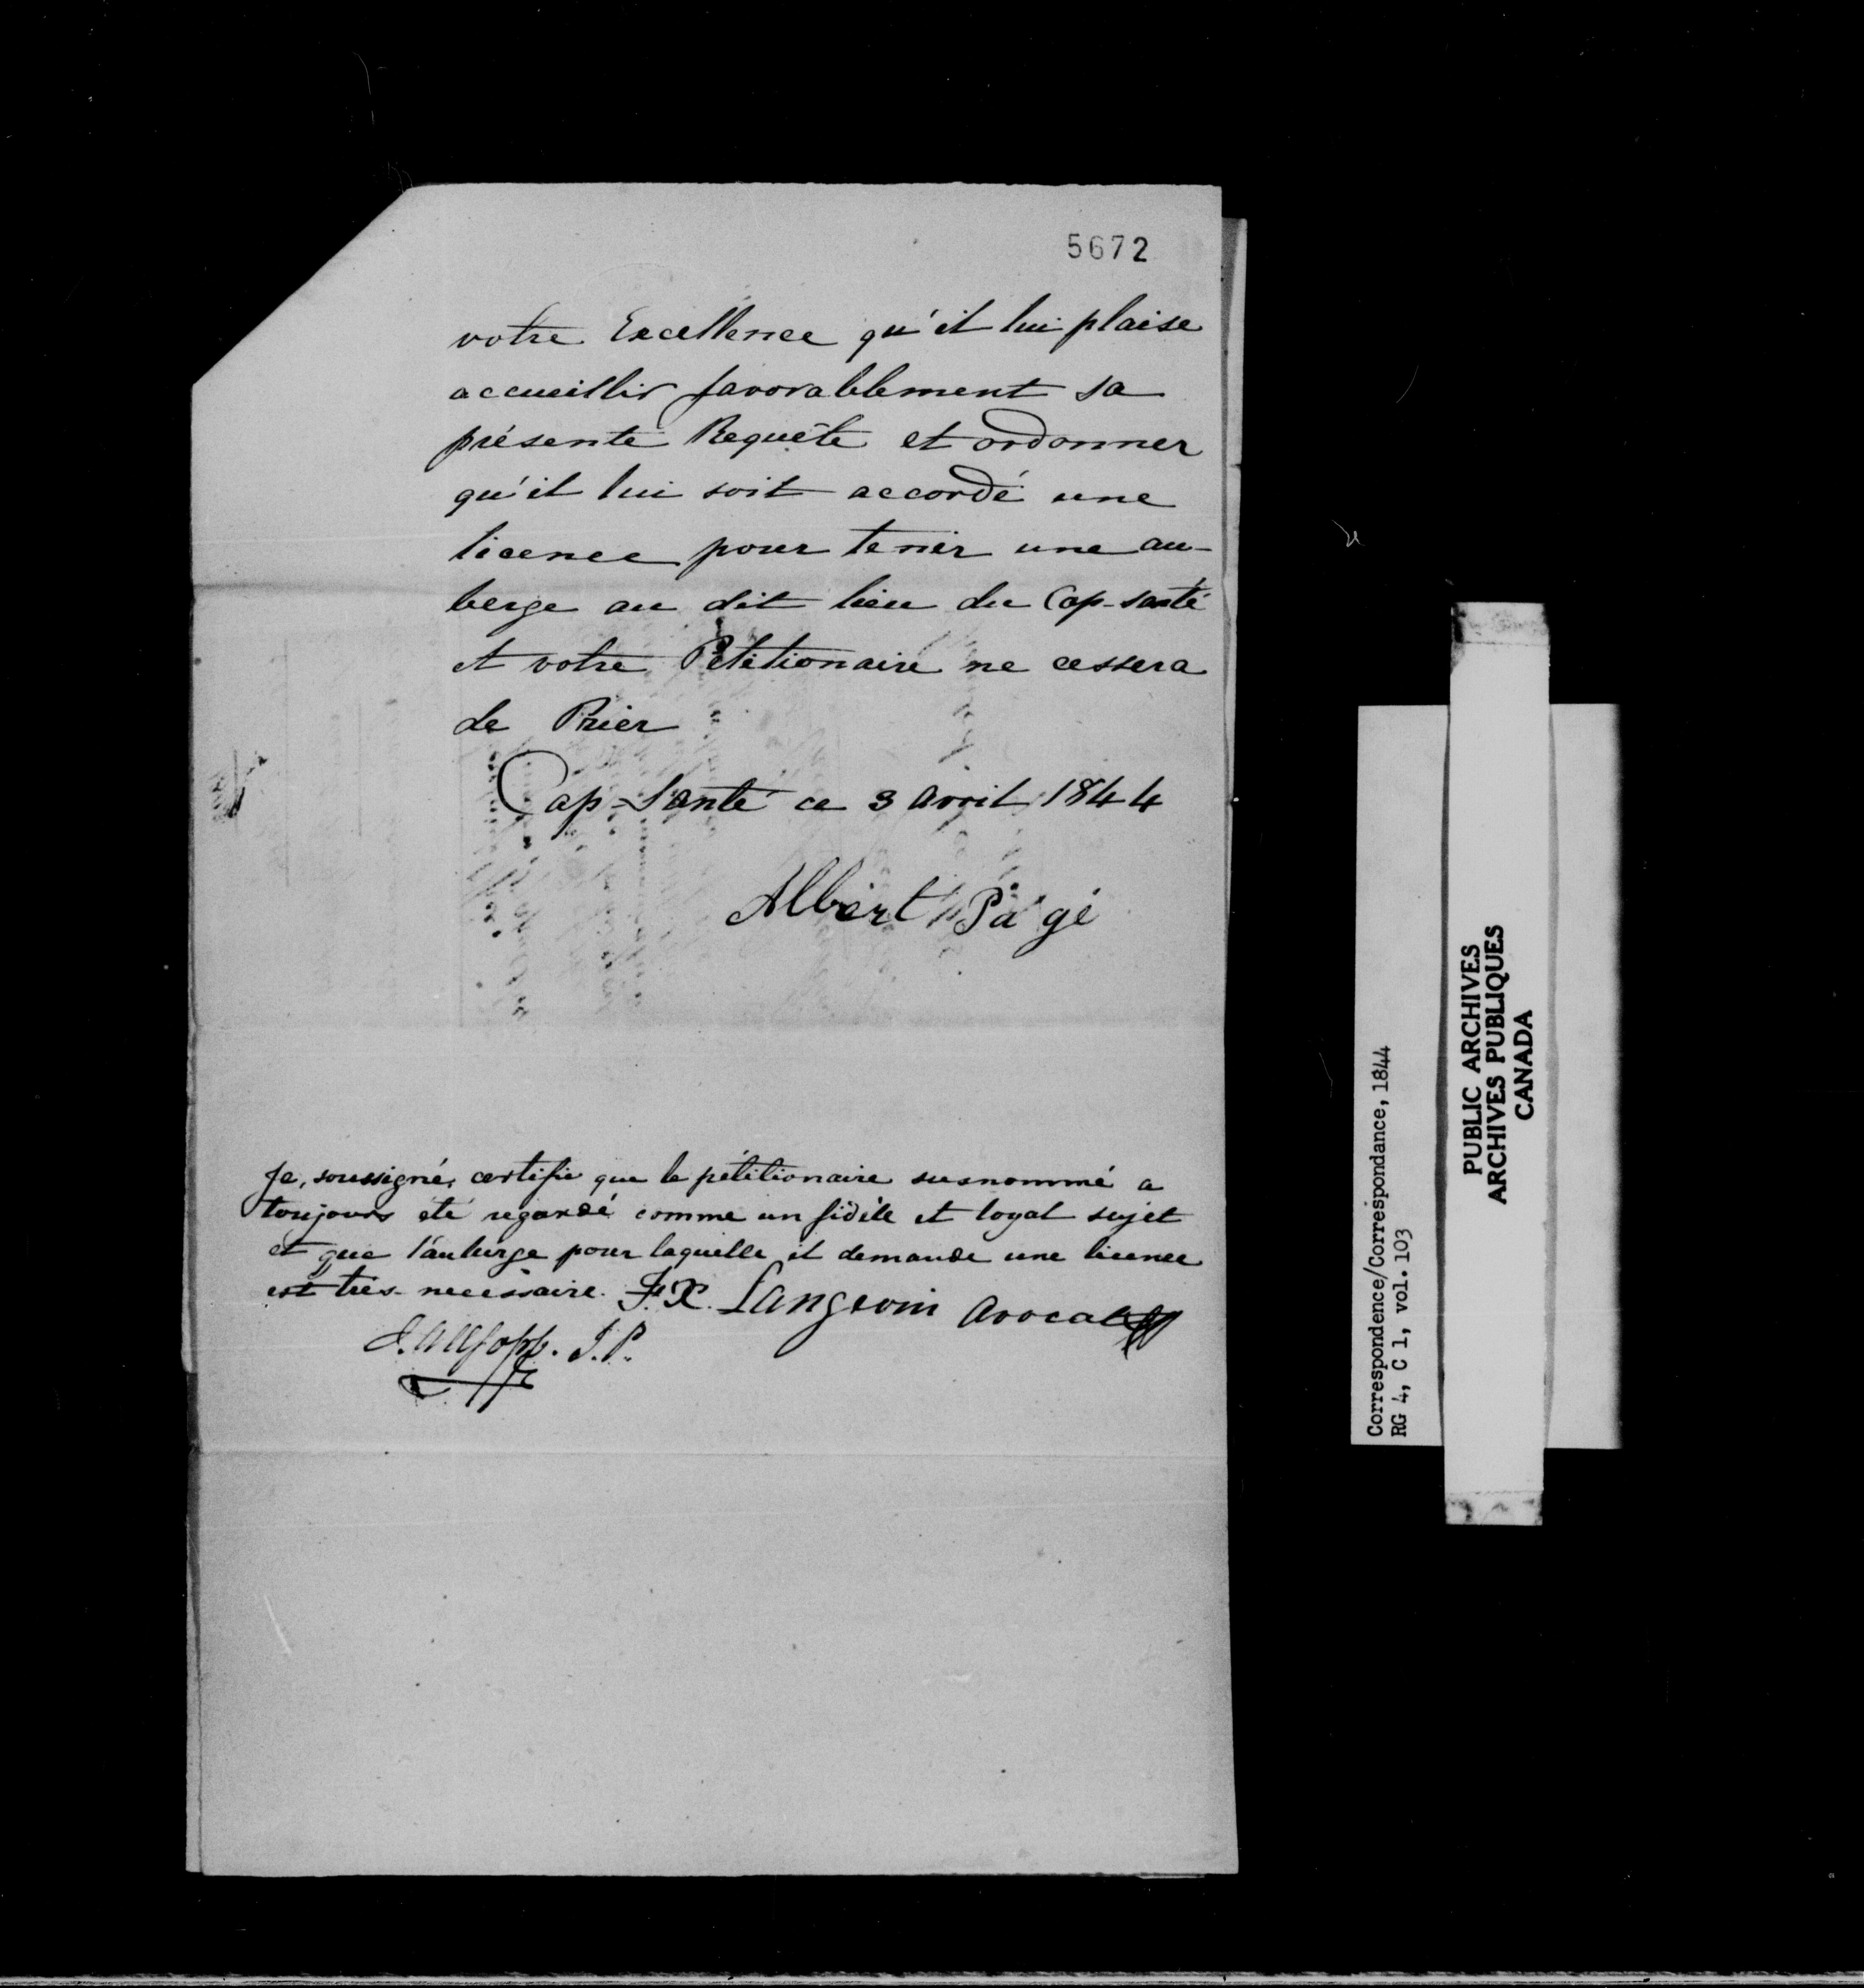 5672
votre Excellence qu'il lui plaise
accueillir favorablement sa
présente Requête et ordonner
qu'il lui soit accordé une
licence pour tenir une au-
berge au dit lieu du Cap-santé
et votre Pétitionaire ne cessera
de Prier
Cap-Santé ce 3 avril 1844
Albert Pagé
Je, soussigné, certifie que le pétitionaire susnommé a
toujours été regardé comme un fidèle et loyal sujet
et que l'auberge pour laquelle il demande une licence
est très-necéssaire. F. X. Langevin avocat
J. Allsopp. J. P.
Correspondence/Correspondance, 1844
RG 4, C 1, vol. 103
PUBLIC ARCHIVES
ARCHIVES PUBLIQUES
CANADA